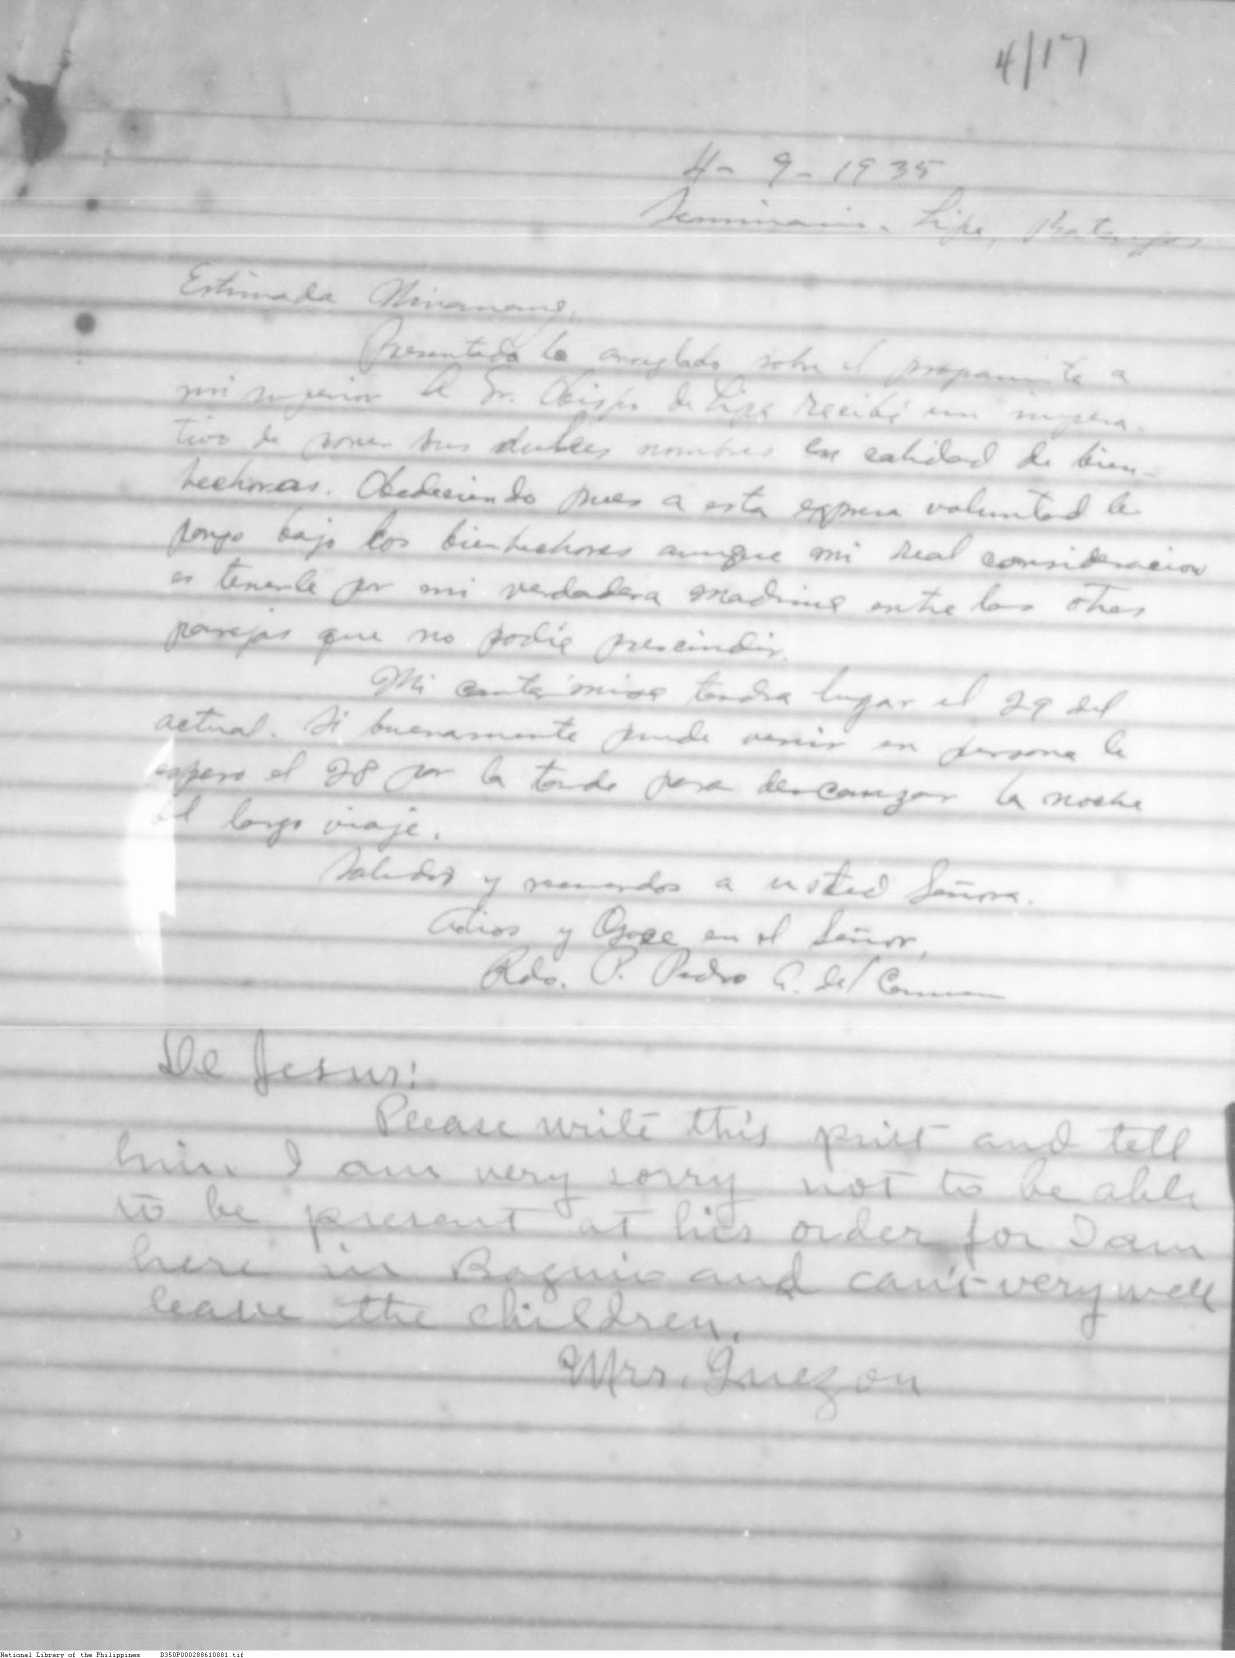 4/17
4-9-1935
Seminario, Lipa, Batangas
Estimada Ninamang,
Presentado lo arreglado sobre el a
mi superior el Sr. Obispo de Lipa recibí un impera-
tivo de poner sus dulces nombres en calidad de bien-
hechoras. Obedeciendo pues a esta expresa voluntad le
pongo bajo los bienhechores aunque mi real consideracion
es tenerle por mi verdadera madrina entre las otras
parejas que no podia prescindir.
Mi cantamisa tendra lugar el 29 del
actual. Si buenamente puede venir en persona le
espero el 28 por la tarde para descanzar la noche
el largo viaje.
Saludos y recuerdos a usted Señora.
Adios y Goce en el Señor,
Rdo. P. Pedro G. del Carmen
De Jesus:
Please write this priest and tell
him I am very sorry not to be able
to be present at his order for I am
here in Baguio and can't very well
leave the children.
Mrs. Quezon
National Library of the Philippines D350P000288610881.tif